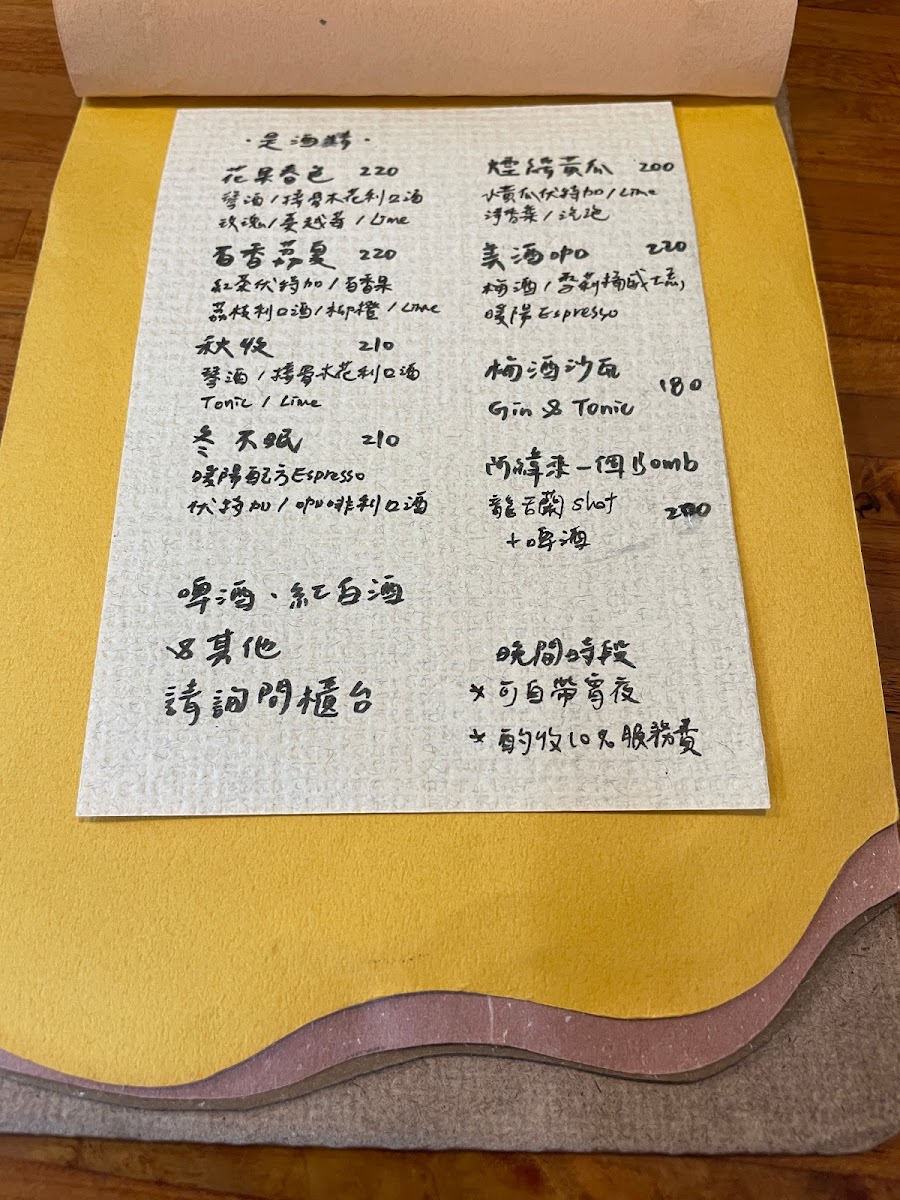 ·是酒精·
花果春色 220
琴酒/接骨木花利口酒
玫瑰/蔓越莓/Lime
百香荔夏 220
紅茶伏特加/百香果
荔枝利口酒/柳橙/Lime
秋收 210
琴酒/接骨木花利口酒
Tonic / Lime
冬不眠 210
暖陽配方Espresso
伏特加/咖啡利口酒
啤酒、紅白酒
&其他
請詢問櫃台
煙 黃瓜 200
小黃瓜伏特加/Lime
洋香菜/汽泡
美酒咖 220
梅酒/雪莉桶威士忌/
暖陽Espresso
梅酒沙瓦
180
Gin & Tonic
阿緯來一個Bomb
龍舌蘭shot 200
+啤酒
晚間時段
*可自帶宵夜
*酌收10%服務費